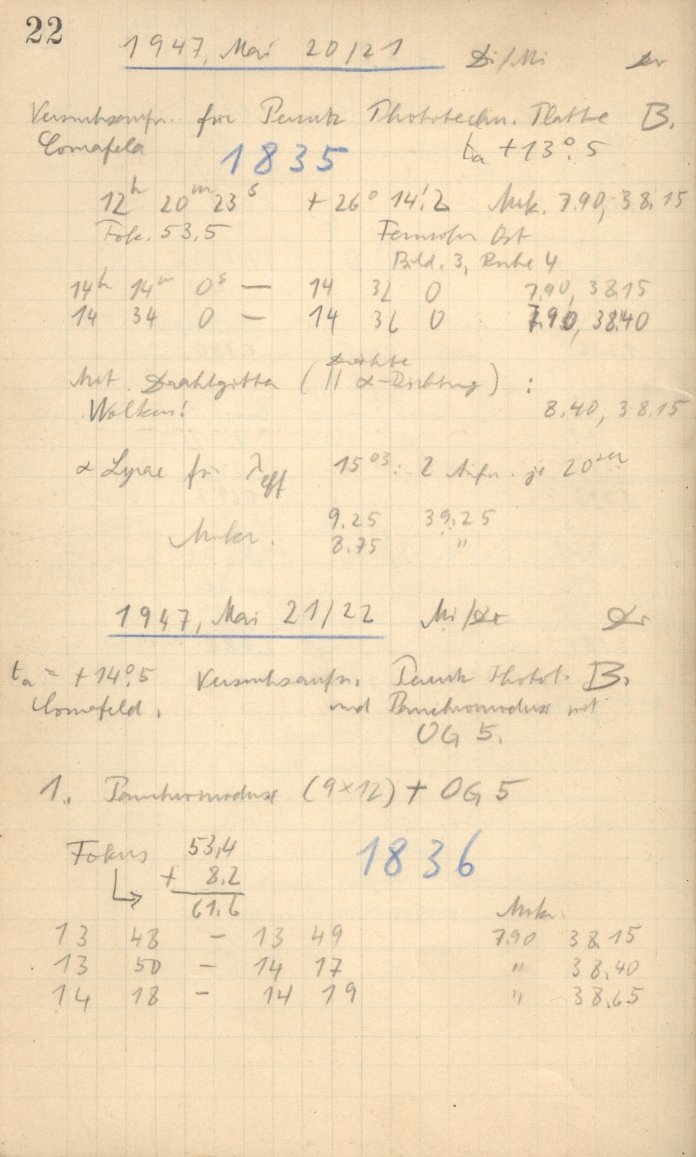 22
1947, Mai 20/21 Di/Mi
Versuchsaufn. für Perutz Phototechn. Platte B.
Comafeld 1835 ta +13°.5
12h 20m 23s + 26° 14!2 Mik. 7.90, 38.15
Fok. 53,5 Fernrohr Ost
Bild. 3, Reihe 4
14h 14m 0s — 14 32 0 7.90, 38.15
14 34 0 — 14 36 0 7.90, 38.40
Drähte
Mit Drahtgitter (|| α-Richtung) :
Wolken! 8.40, 38.15
α Lyrae für λeff 15 03: 2 Aufn. je 20sec
Mikr. 9.25 39.25
8.75 "
1947, Mai 21/22 Mi/Do
ta = +14°.5 Versuchsaufn. Perutz Photot. B.
Comafeld. und Panchromoduxe mit
OG 5.
1. Panchromoduxe (9×12) + OG 5
Fokus 53,4 1836
+ 8.2
61.6 Mikr.
13 48 — 13 49 7.90 38.15
13 50 — 14 17 " 38,40
14 18 — 14 19 " 38,65